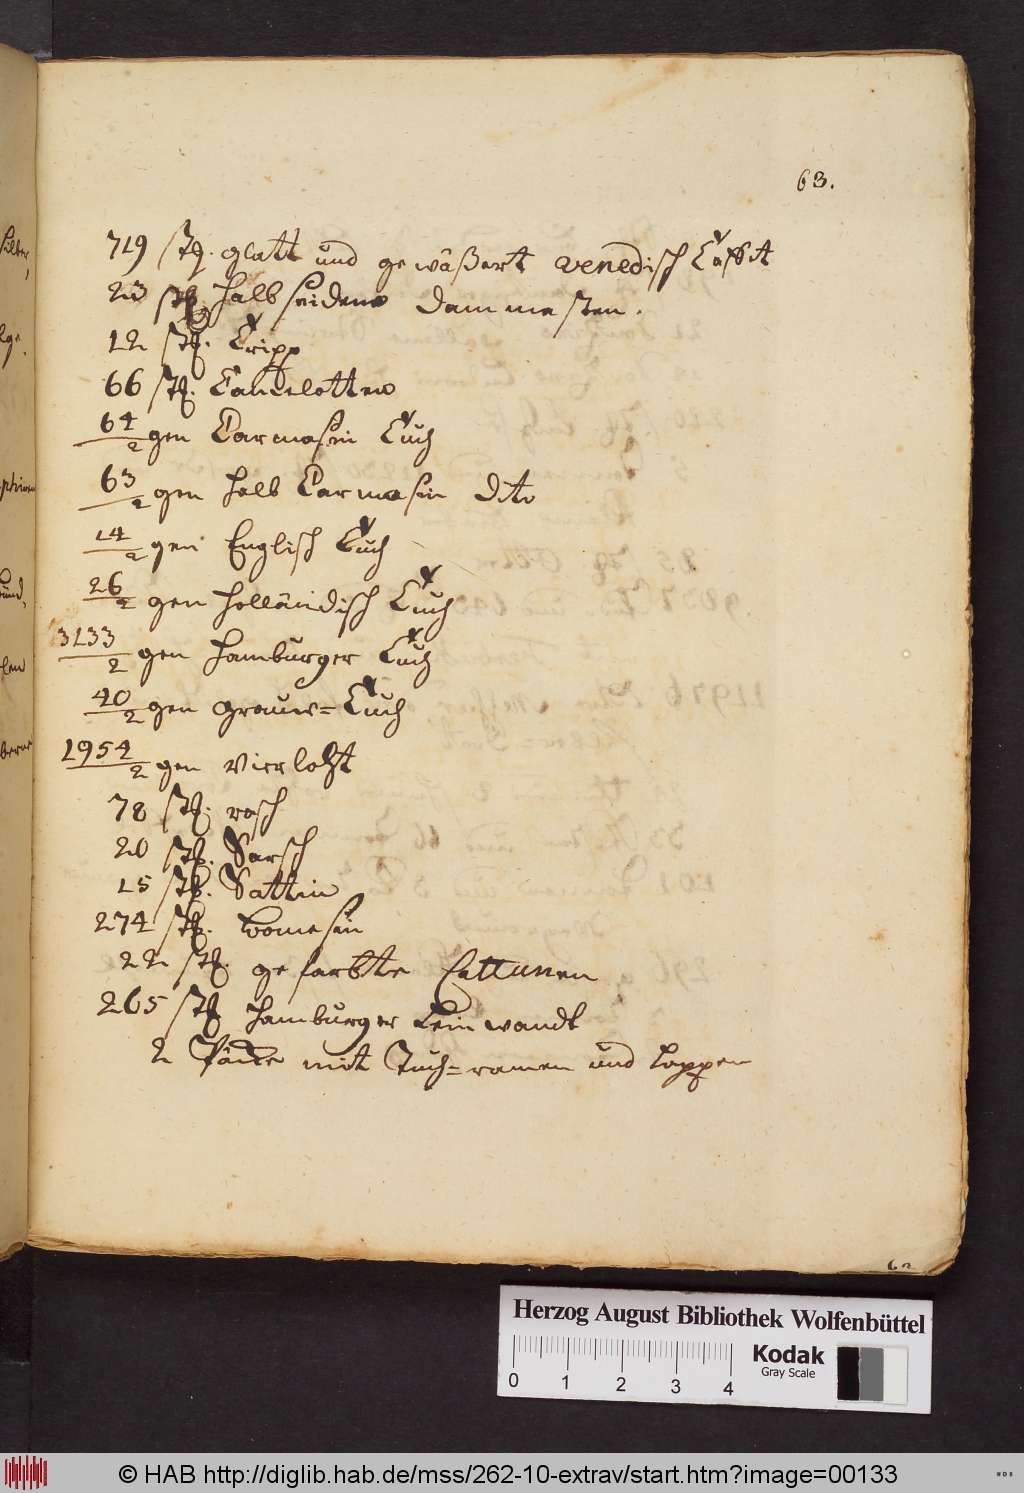 63.
719 stq. glatt und gewäßert venedisch Taffit
23 stq halb seidene dammasten.
12 stq. Cripp
66 stq. Camelotten
64/2 gen Carmasin Tuch
63/2 gen halb Carmasin dito
14/2 gen Englisch Tuch
26/2 gen holländisch Tuch
3133/2 gen hamburger Tuch
40/2 gen grauw=Tuch
1954/2 gen vierloht
78 stq. rasch
20 stq. Sarsch
15 stq. Sattin
274 stq. bomesin
22 stq. gefarbte Cattunen
265 stq hamburger Leinwandt
2 Päcke mit Tuch=ramen und lappen
Herzog August Bibliothek Wolfenbüttel
Kodak
Gray Scale
0 1 2 3 4
© HAB http://diglib.hab.de/mss/262-10-extrav/start.htm?image=00133